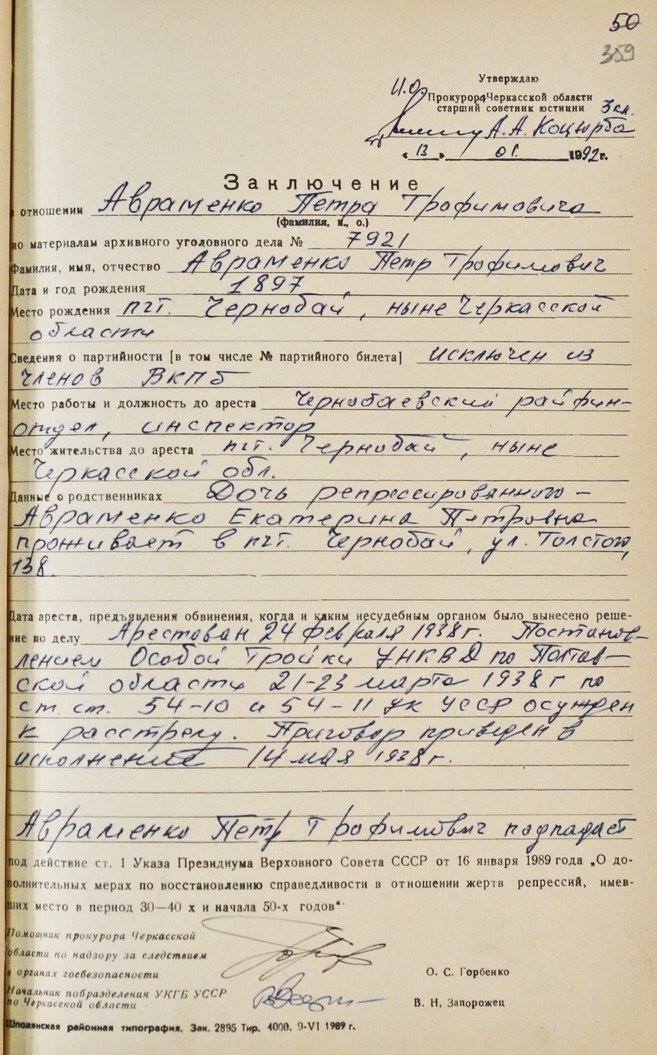 50
359
Утверждаю
И.О. Прокурора Черкасской области
старший советник юстиции 3 кл.
А.А. Коцюрба
« 13 » 01 1992 г.
Заключение
в отношении Авраменко Петра Трофимовича
(фамилия, и., о.)
по материалам архивного уголовного дела № 7921
Фамилия, имя, отчество Авраменко Петр Трофимович
Дата и год рождения 1897
Место рождения пгт. Чернобай, ныне Черкасской
области
Сведения о партийности [в том числе № партийного билета] исключен из
членов ВКПб
Место работы и должность до ареста Чернобаевский райфин-
отдел, инспектор
Место жительства до ареста пгт. Чернобай, ныне
Черкасской обл.
Данные о родственниках Дочь репрессированного –
Авраменко Екатерина Петровна
проживает в пгт. Чернобай, ул. Толстого,
138.
Дата ареста, предъявления обвинения, когда и каким несудебным органом было вынесено реше-
ние по делу Арестован 24 февраля 1938 г. Постанов-
лением Особой Тройки УНКВД по Полтав-
ской области 21-23 марта 1938 г по
ст. ст. 54-10 и 54-11 УК УССР осужден
к расстрелу. Приговор приведен в
исполнение 14 мая 1938 г.
Авраменко Петр Трофимович подпадает
под действие ст. 1 Указа Президиума Верховного Совета СССР от 16 января 1989 года „О до-
полнительных мерах по восстановлению справедливости в отношении жертв репрессий, имев-
ших место в период 30—40 х и начала 50-х годов"
Помощник прокурора Черкасской
области по надзору за следствием
в органах госбезопасности
О. С. Горбенко
Начальник подразделения УКГБ УССР
по Черкасской области
В. Н. Запорожец
Шполянская районная типография. Зак. 2895 Тир. 4000. 9-VI 1989 г.